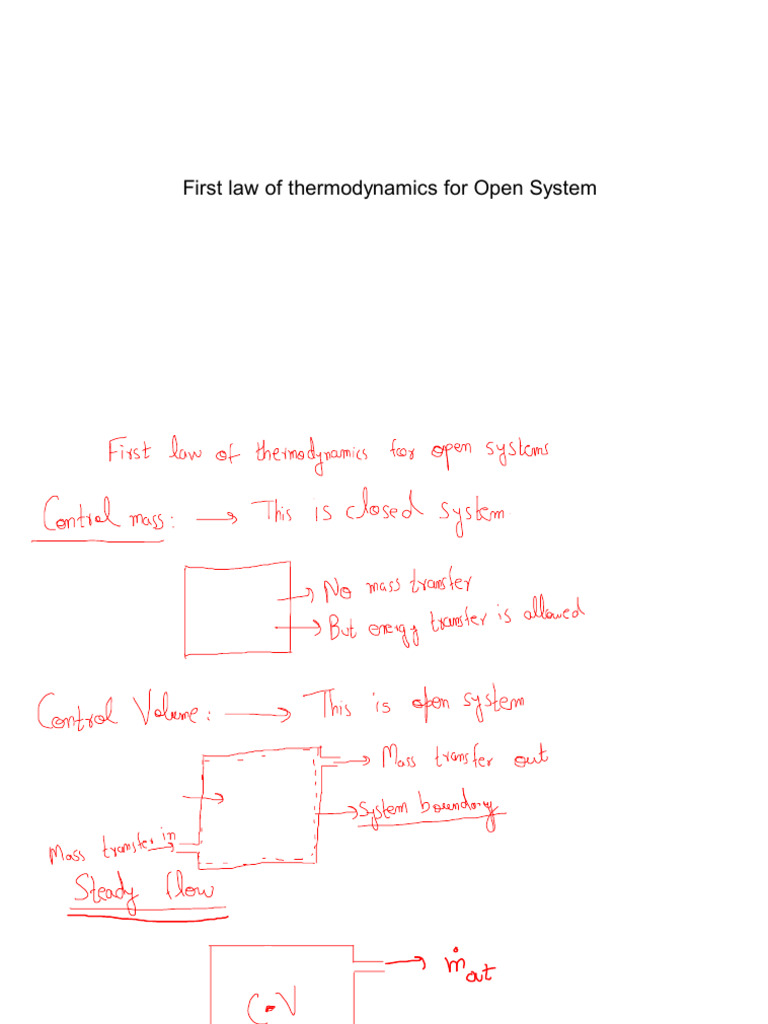 First law of thermodynamics for Open System
First law of thermodynamics for open systems
Control mass: → This is closed system
→ No mass transfer
→ But energy transfer is allowed
Control Volume: → This is open system
→ Mass transfer out
→ System boundary
Mass transfer in
Steady flow
→ ṁout
C-V